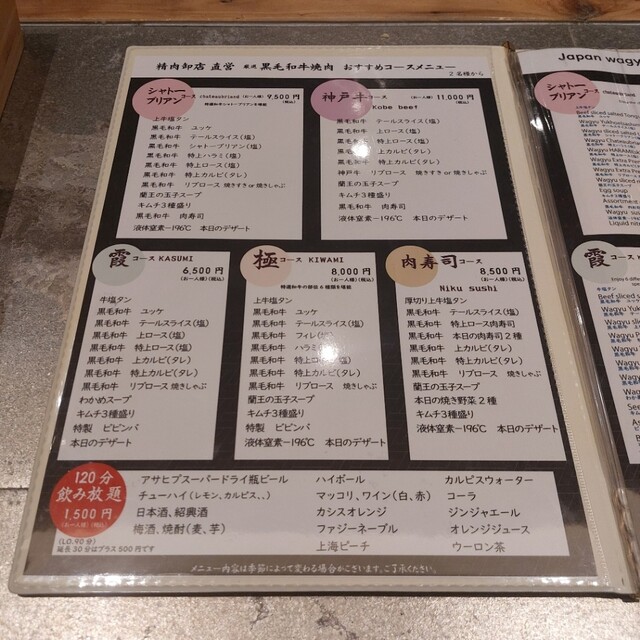 精肉卸店 直営 厳選 黒毛和牛焼肉 おすすめコースメニュー
2名様から
シャトーブリアンコース chateaubriand (お一人様) 9,500円(税込)
上牛塩タン
黒毛和牛 ユッケ
黒毛和牛 テールスライス(塩)
黒毛和牛 シャトーブリアン(塩)
黒毛和牛 特上ハラミ(塩)
黒毛和牛 特上ロース(塩)
黒毛和牛 特上カルビ(タレ)
黒毛和牛 リブロース 焼きすき or 焼きしゃぶ
蘭王の玉子スープ
キムチ3種盛り
黒毛和牛 肉寿司
液体窒素-196℃ 本日のデザート
神戸牛コース (お一人様) 11,000円(税込)
Kobe beef
黒毛和牛 テールスライス(塩)
黒毛和牛 上ロース(塩)
黒毛和牛 特上ロース(塩)
黒毛和牛 上カルビ(タレ)
黒毛和牛 特上カルビ(タレ)
神戸牛 リブロース 焼きすき or 焼きしゃぶ
蘭王の玉子スープ
キムチ3種盛り
黒毛和牛 肉寿司
液体窒素-196℃ 本日のデザート
霞コース KASUMI
6,500円
(お一人様)(税込)
牛塩タン
黒毛和牛 ユッケ
黒毛和牛 テールスライス(塩)
黒毛和牛 上ロース(塩)
黒毛和牛 特上ロース(塩)
黒毛和牛 上カルビ(タレ)
黒毛和牛 特上カルビ(タレ)
黒毛和牛 リブロース 焼きしゃぶ
わかめスープ
キムチ3種盛り
特製 ビビンバ
本日のデザート
極コース KIWAMI
8,000円
(お一人様)(税込)
特選和牛の部位6種類を堪能
上牛塩タン
黒毛和牛 ユッケ
黒毛和牛 テールスライス(塩)
黒毛和牛 フィレ(塩)
黒毛和牛 ハラミ(塩)
黒毛和牛 特上ロース(塩)
黒毛和牛 特上カルビ(タレ)
黒毛和牛 リブロース 焼きしゃぶ
蘭王の玉子スープ
キムチ3種盛り
特製 ビビンバ
液体窒素-196℃ 本日のデザート
肉寿司コース
8,500円
(お一人様)(税込)
Niku sushi
厚切り上牛塩タン
黒毛和牛 テールスライス(塩)
黒毛和牛 特上ロース肉寿司
黒毛和牛 本日の肉寿司2種
黒毛和牛 上カルビ(タレ)
黒毛和牛 特上カルビ(タレ)
黒毛和牛 リブロース 焼きしゃぶ
蘭王の玉子スープ
本日の焼き野菜2種
キムチ3種盛り
液体窒素-196℃ 本日のデザート
120分
飲み放題
1,500円
(お一人様)(税込)
(LO.90分)
延長30分はプラス500円です
アサヒスーパードライ瓶ビール
チューハイ(レモン、カルピス、、)
日本酒、紹興酒
梅酒、焼酎(麦、芋)
ハイボール
マッコリ、ワイン(白、赤)
カシスオレンジ
ファジーネーブル
上海ピーチ
カルピスウォーター
コーラ
ジンジャエール
オレンジジュース
ウーロン茶
メニュー内容は季節によって変わる場合がございます。ご了承ください。
Japan wagy
シャトーブリアンコース
Egg soup
キムチ3種盛り
霞コース